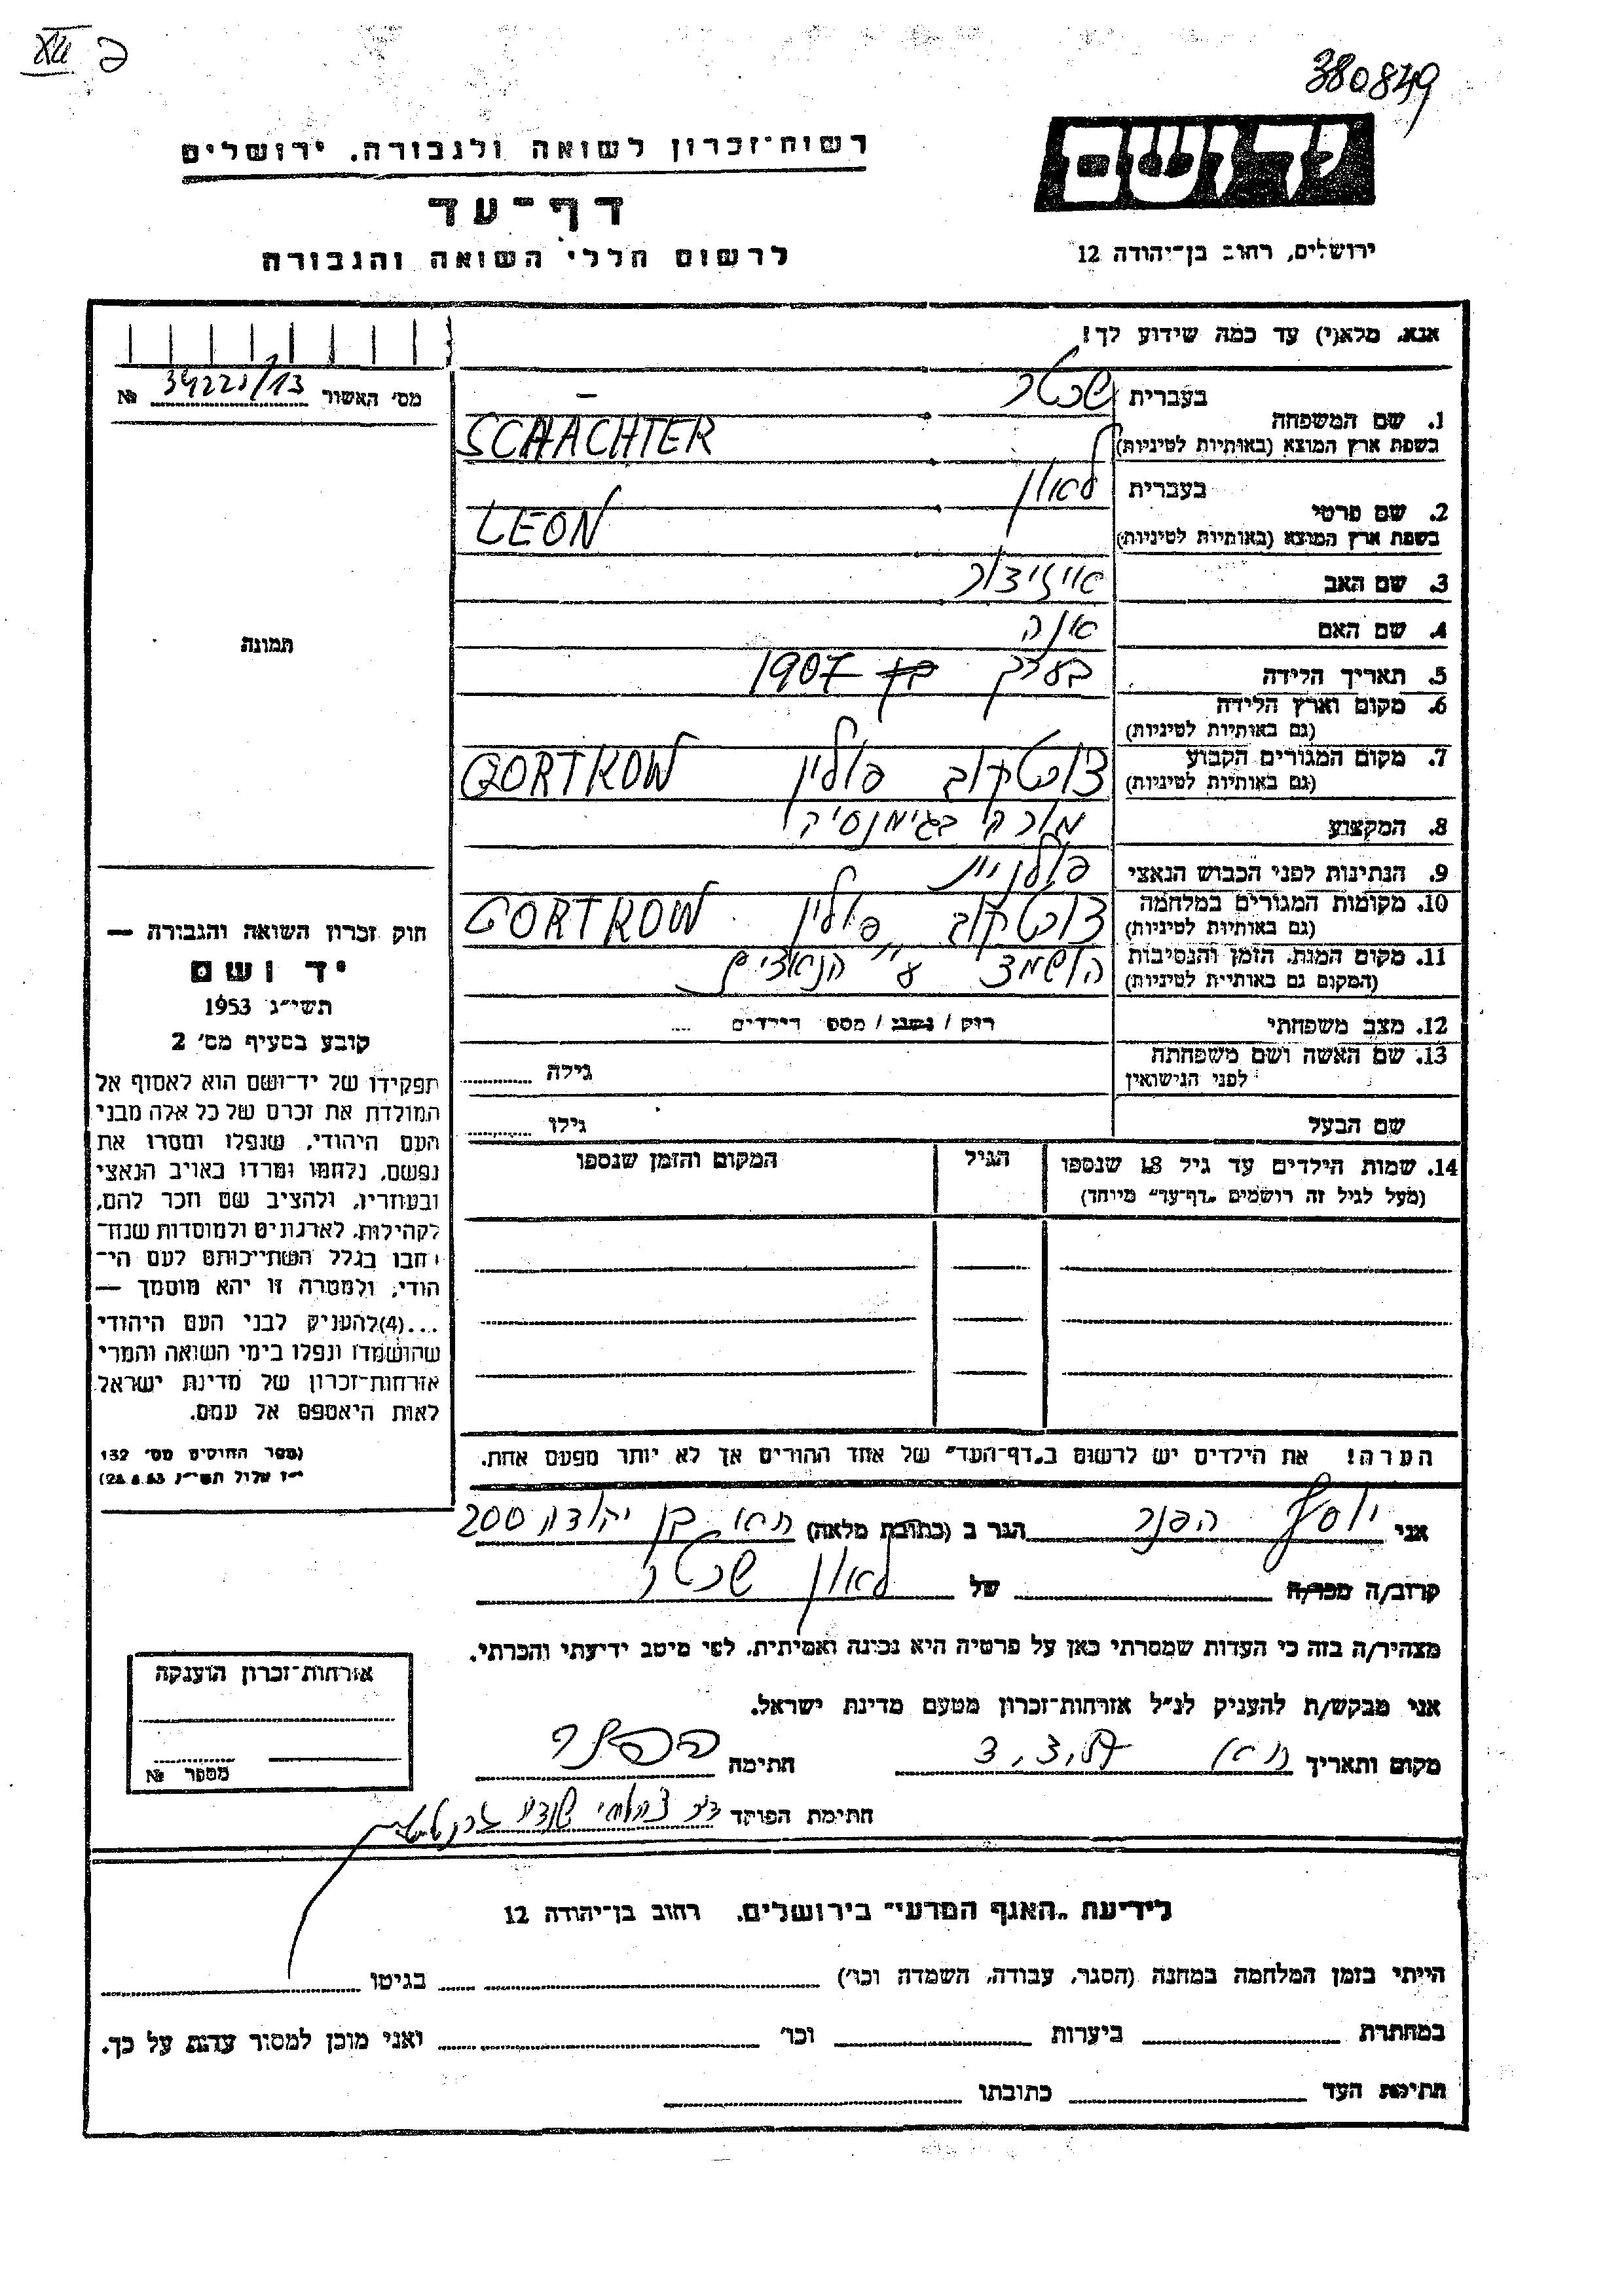 380849
רשות־זכרון לשואה ולגבורה, ירושלים
יד ושם
דף־עד
ירושלים, רחוב בן־יהודה 12
לרשום חללי השואה והגבורה
אנא, מלא(י) עד כמה שידוע לך!
מס׳ האשור № 34221/13
1. שם המשפחה
בעברית שכטר
בשפת ארץ המוצא (באותיות לטיניות) SCHACHTER
2. שם פרטי
בעברית לאון
בשפת ארץ המוצא (באותיות לטיניות) LEON
3. שם האב איזידור
4. שם האם אנה
תמונה
5. תאריך הלידה בערך 1907
6. מקום וארץ הלידה
(גם באותיות לטיניות)
7. מקום המגורים הקבוע
(גם באותיות לטיניות) צורטקוב פולין CZORTKOW
8. המקצוע מורה בגימנסיה
9. הנתינות לפני הכבוש הנאצי פולנית
10. מקומות המגורים במלחמה
(גם באותיות לטיניות) צורטקוב פולין CZORTKOW
11. מקום המות, הזמן והנסיבות
(המקום גם באותיות לטיניות) הושמד ע״י הנאצים
12. מצב משפחתי רוק / נשוי / מספר הילדים ....
13. שם האשה ושם משפחתה
לפני הנישואין
גילה
שם הבעל גילו
14. שמות הילדים עד גיל 18 שנספו הגיל המקום והזמן שנספו
(מעל לגיל זה רושמים „דף־עד״ מיוחד)
הערה! את הילדים יש לרשום ב„דף־העד״ של אחד ההורים אך לא יותר מפעם אחת.
חוק זכרון השואה והגבורה —
יד ושם
תשי״ג 1953
קובע בסעיף מס׳ 2
תפקידו של יד־ושם הוא לאסוף אל
המולדת את זכרם של כל אלה מבני
העם היהודי, שנפלו ומסרו את
נפשם, נלחמו ומרדו באויב הנאצי
ובעוזריו, ולהציב שם וזכר להם,
לקהילות, לארגונים ולמוסדות שנח־
רבו בגלל השתייכותם לעם הי־
הודי, ולמטרה זו יהא מוסמך —
...(4) להעניק לבני העם היהודי
שהושמדו ונפלו בימי השואה והמרי
אזרחות־זכרון של מדינת ישראל
לאות היאספם אל עמם.
(ספר החוקים מס׳ 132
י״ז אלול תשי״ג 28.8.53)
אני יוסף הפנר הגר ב (כתובת מלאה) ת״א, בן יהודה 200
קרוב/ה מכר/ה של לאון שכטר
מצהיר/ה בזה כי העדות שמסרתי כאן על פרטיה היא נכונה ואמיתית, לפי מיטב ידיעתי והכרתי.
אני מבקש/ת להעניק לנ״ל אזרחות־זכרון מטעם מדינת ישראל.
מקום ותאריך ת״א 3.3.57 חתימה הפנר
חתימת הפוקד
אזרחות־זכרון הוענקה
מספר №
לידיעת „האגף המדעי״ בירושלים, רחוב בן־יהודה 12
הייתי בזמן המלחמה במחנה (הסגר, עבודה, השמדה וכו׳) בגיטו
במחתרת ביערות וכו׳ ואני מוכן למסור עדות על כך.
חתימת העד כתובתו